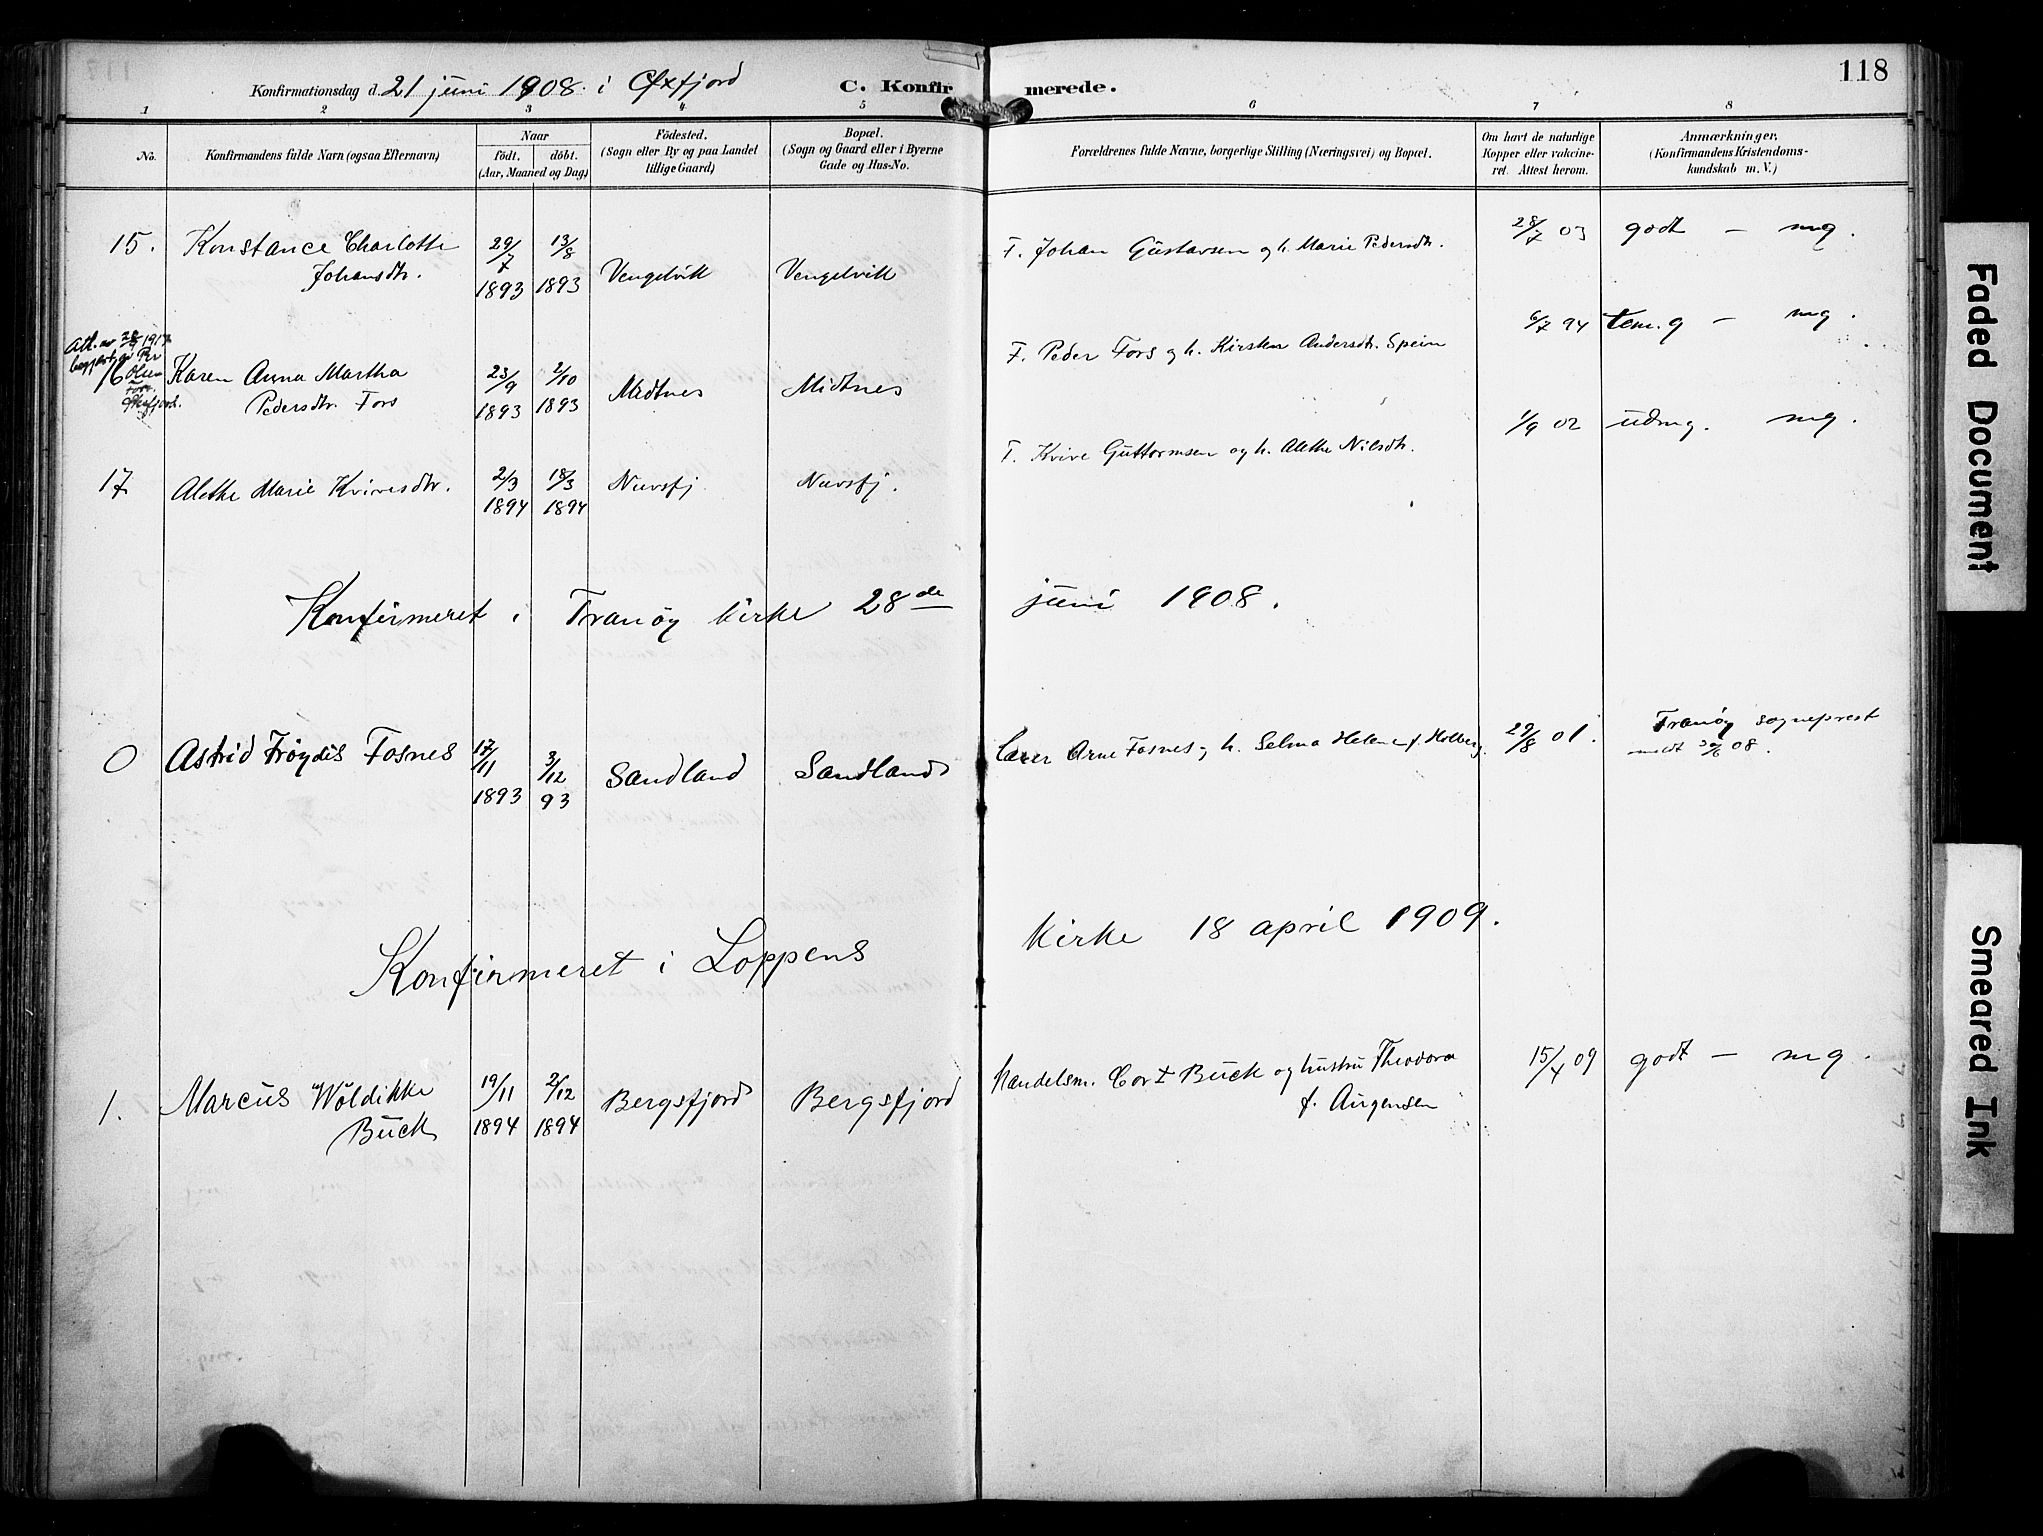 118
Konfirmationsdag d. 21 juni 1908. i Øxfjord
C. Konfirmerede.
1 2 3 4 5 6 7 8
No.
Konfirmandens fulde Navn (ogsaa Efternavn)
Naar
födt, döbt.
(Aar, Maaned og Dag)
Födested.
(Sogn eller By og paa Landet
tillige Gaard)
Bopæl.
(Sogn og Gaard eller i Byerne
Gade og Hus-No.
Forældrenes fulde Navne, borgerlige Stilling (Næringsvei) og Bopæl.
Om havt de naturlige
Kopper eller vakcine-
ret. Attest herom.
Anmærkninger.
(Konfirmandens Kristendoms-
kundskab m. V.)
15. Konstance Charlotte
Johansdtr.
29/7 1893
13/8 1893
Vengelvik
Vengelvik
F. Johan Gustavsen og h. Marie Pedersdtr.
28/7 03
godt – mg.
16 Karen Anna Martha
Pedersdtr. Fors
23/9 1893
2/10 1893
Midtnes
Midtnes
F. Peder Fors og h. Kirsten Andersdtr. Spein
6/7 94
tem. g – mg.
17 Alethe Marie Kviresdtr.
2/3 1894
18/3 1894
Nuvsfj.
Nuvsfj.
F. Kvive Guttormsen og h. Alethe Nilsdtr.
1/9 02
udmg. mg.
Konfirmeret i Tranöy kirke 28de juni 1908.
0 Astrid Fröydis Fosnes
17/11 1893
3/12 93
Sandland
Sandland
Lærer Arne Fosnes og h. Selma Helene f. Holberg
29/8 01.
Tranöy sogneprest
medt 30/6 08.
Konfirmeret i Loppens kirke 18 april 1909.
1. Marcus Wöldikke
Buck
19/11 1894
2/12 1894
Bergsfjord
Bergsfjord
Handelsm. Cort Buck og hustru Theodora
f. Augensen
15/4 09
godt – mg.
Faded Document
Smeared Ink